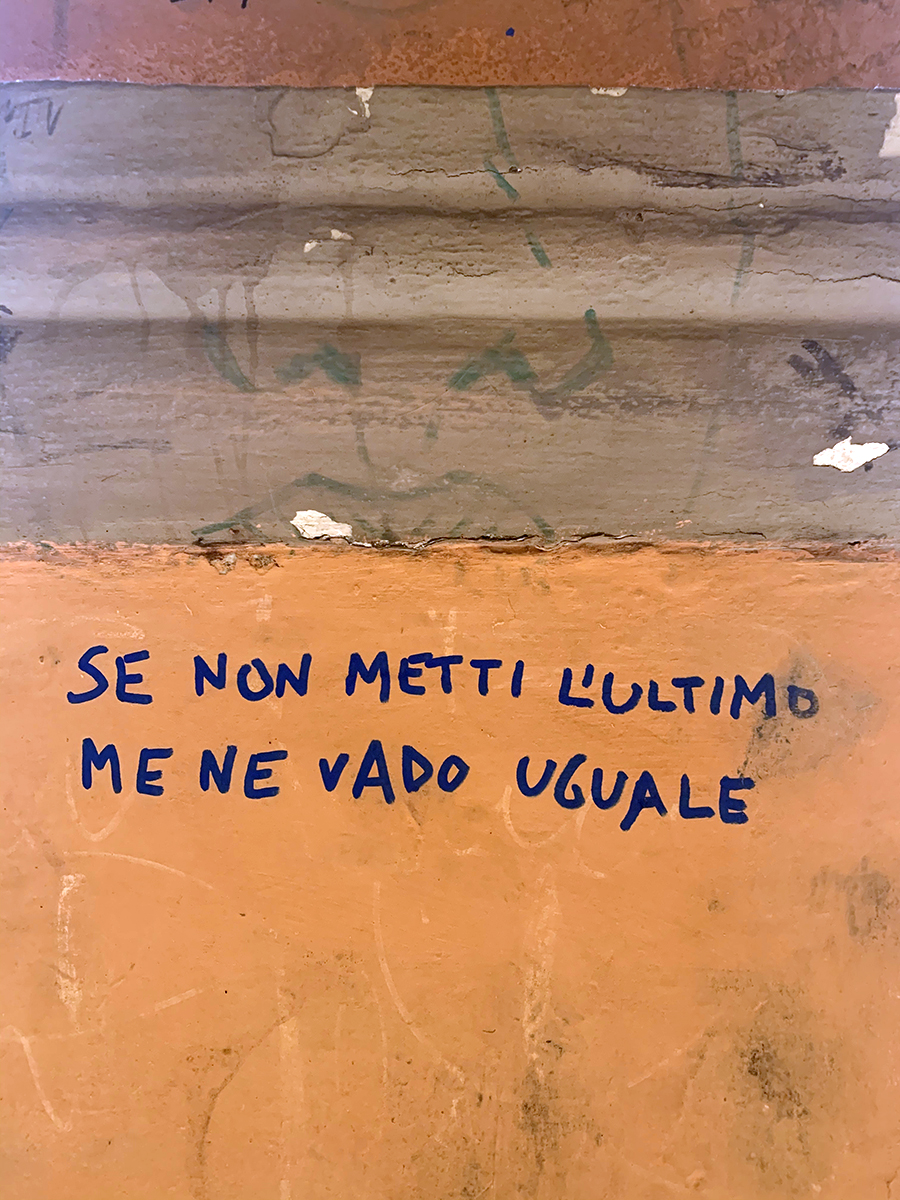 SE NON METTI L'ULTIMO
ME NE VADO UGUALE